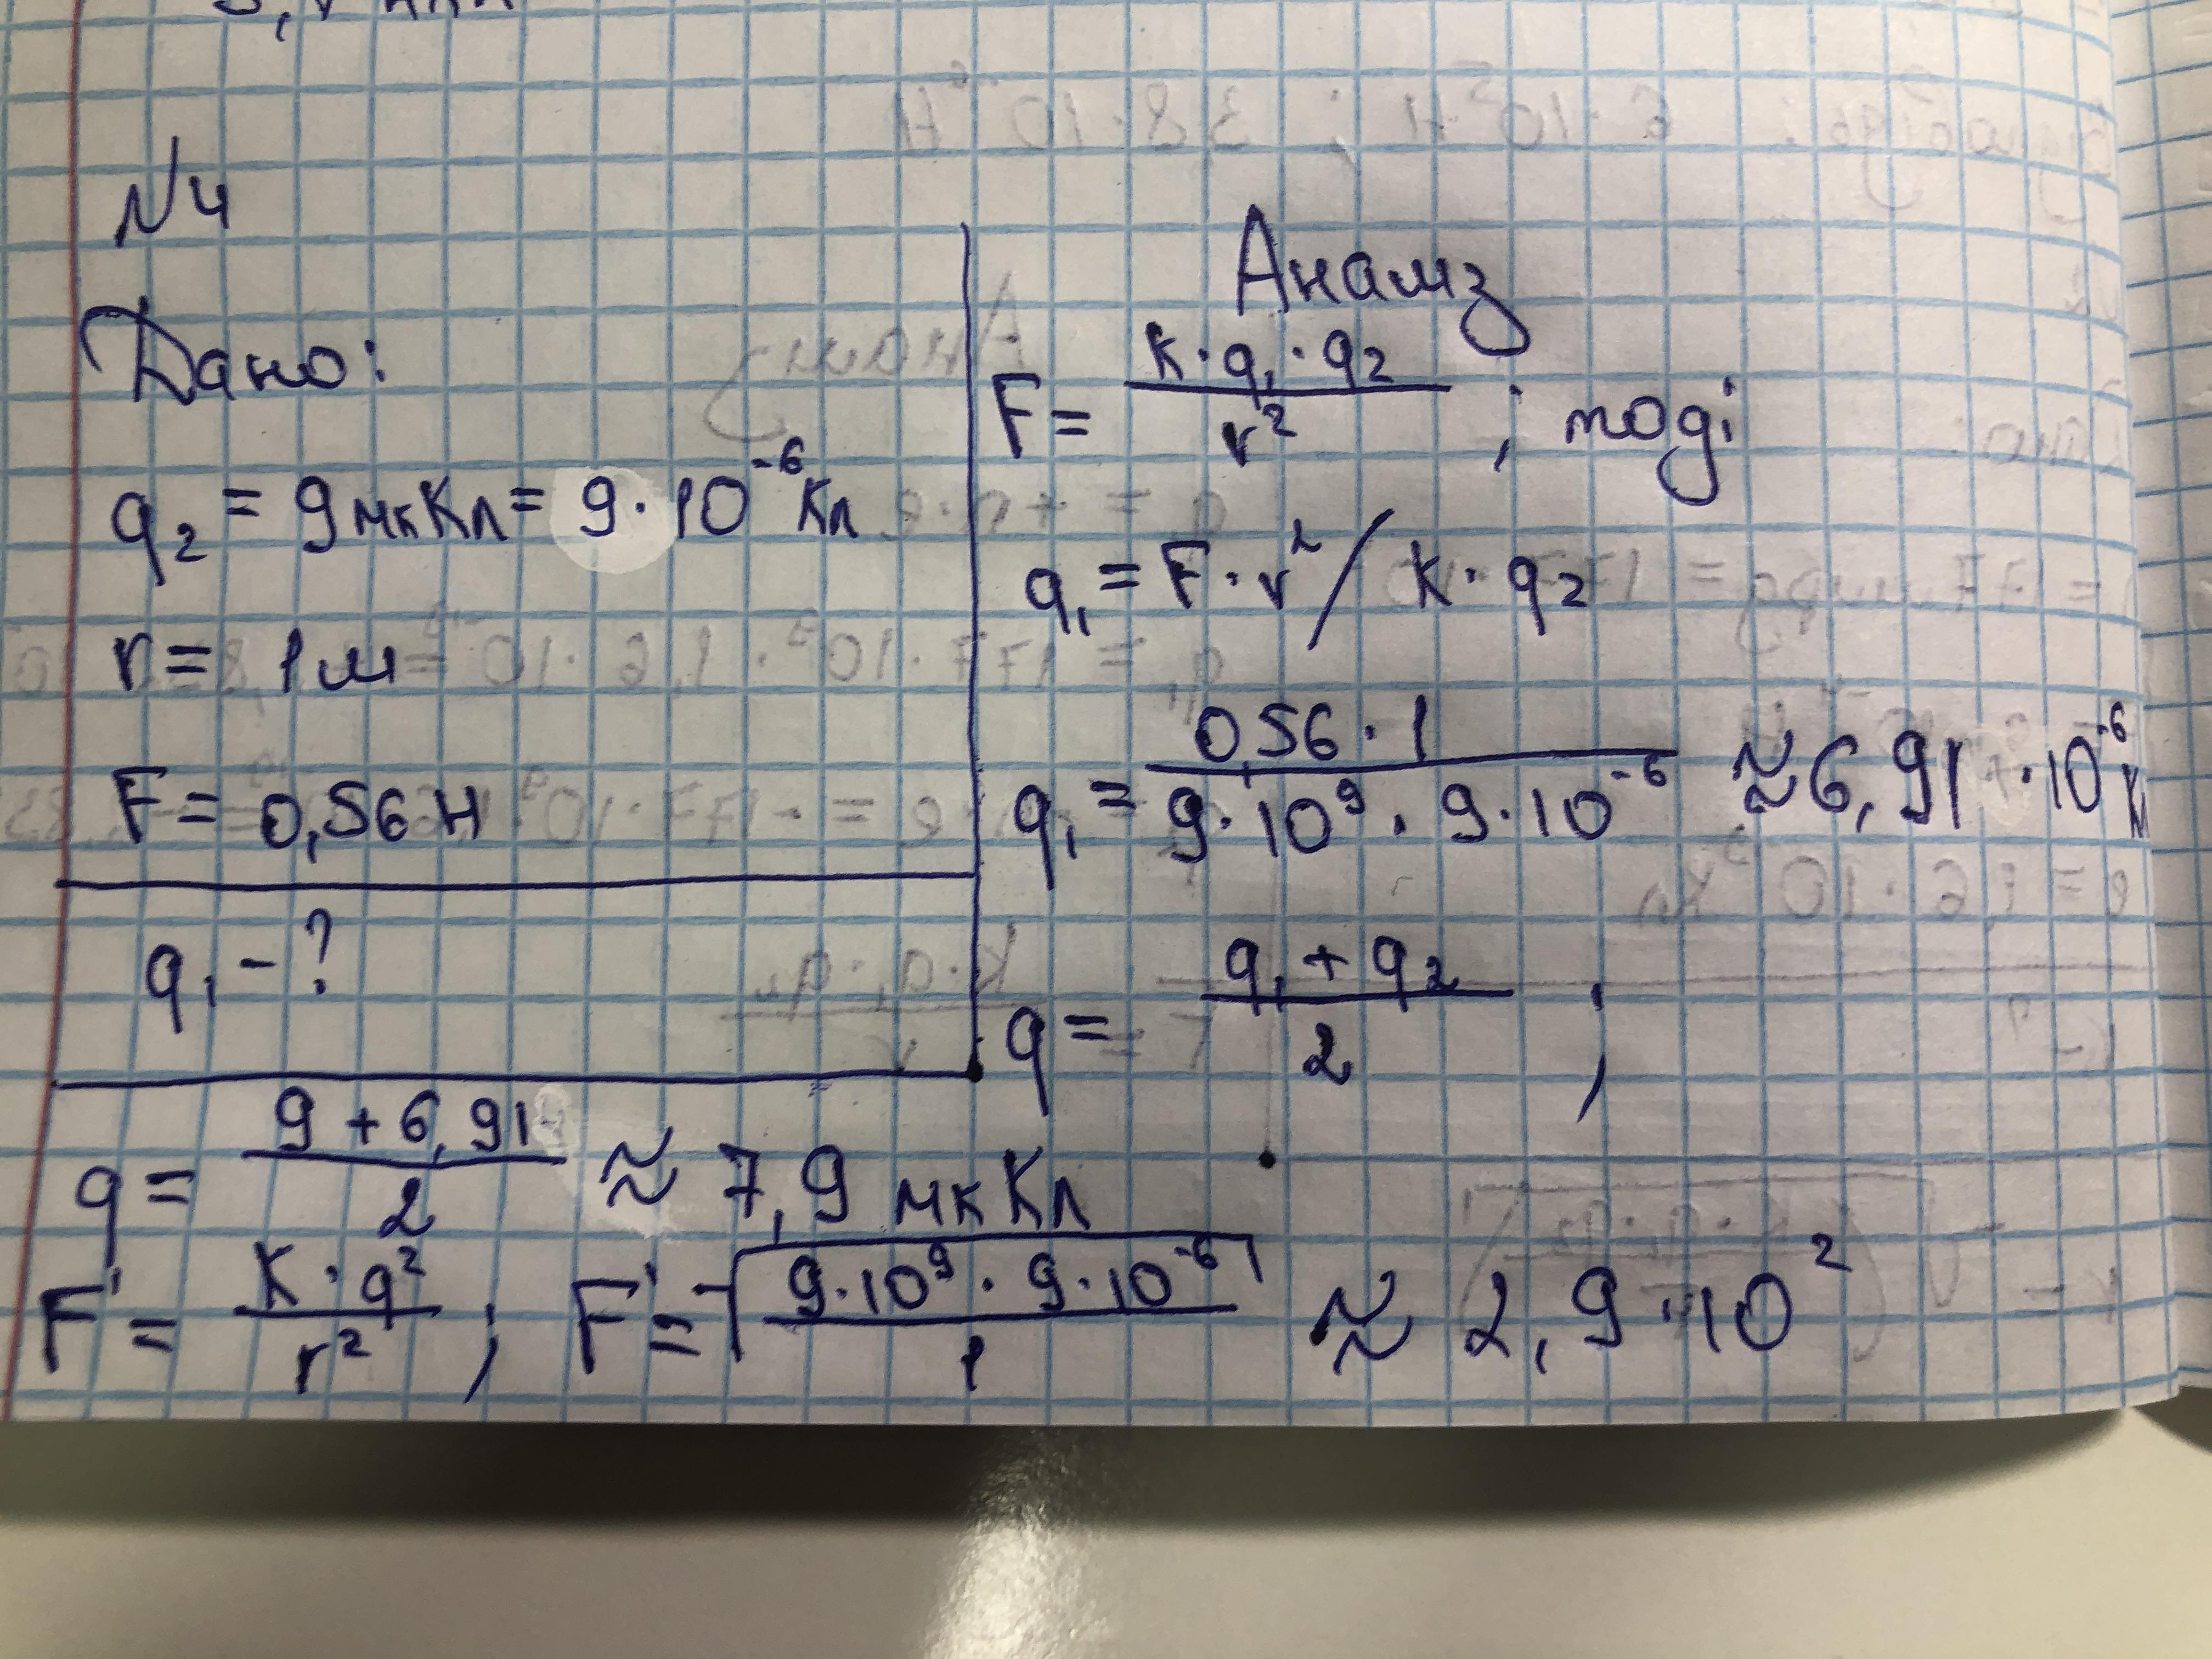 №4
Дано:
q₂ = 9 мкКл = 9·10⁻⁶ Кл
r = 1 м
F = 0,56 Н
q₁ - ?
Аналіз
F = k·q₁·q₂ / r² ; тоді
q₁ = F·r² / k·q₂
q₁ = 0,56·1 / 9·10⁹·9·10⁻⁶ ≈ 6,91·10⁻⁶ К
q = q₁ + q₂ / 2 ;
q = 9 + 6,91 / 2 ≈ 7,9 мкКл
F' = k·q² / r² ; F' = √(9·10⁹·9·10⁻⁶ / 1) ≈ 2,9·10²